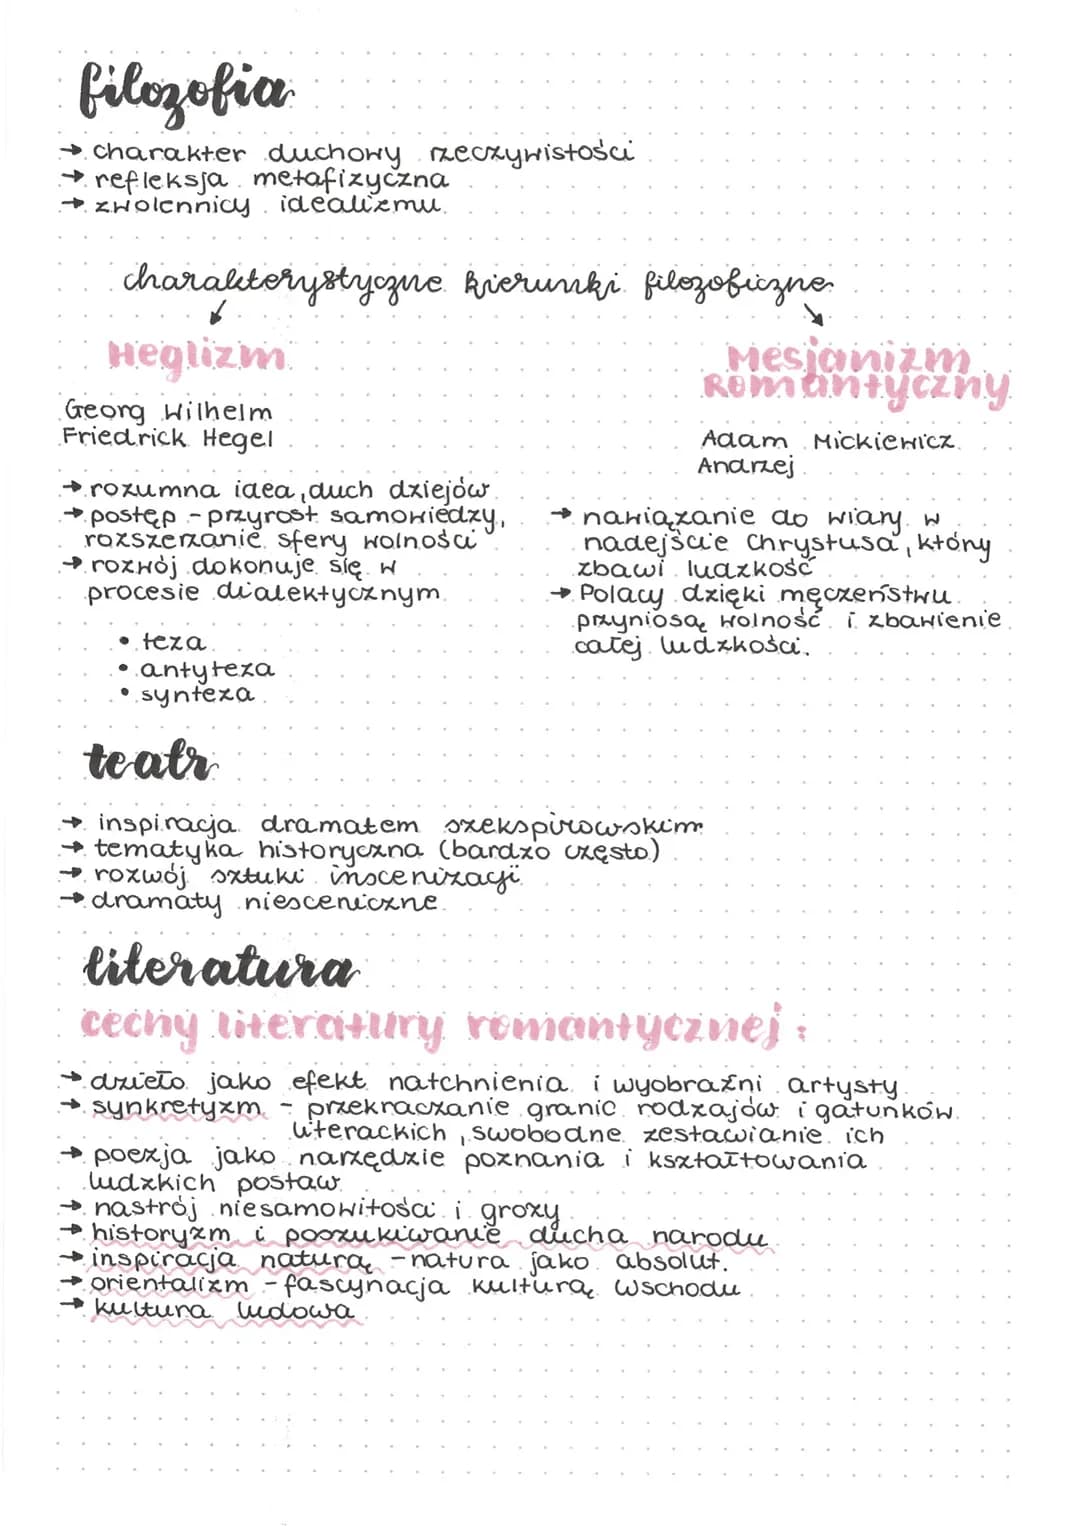 filozofia
→ charakter duchowy rzeczywistości
→ refleksja metafizyczna
→ zwolennicy idealizmu
charakterystyczne kierunki filozoficzne
Heglizm
Georg Wilhelm
Friedrick Hegel
→ rozumna idea, duch dziejów
→ postęp - przyrost samowiedzy,
rozszerzanie sfery wolności
→ rozwój dokonuje się w
procesie dialektycznym
• teza
• antyteza
• synteza
Mesjanizm
Romantyczny
Adam Mickiewicz
Andrzej
→ nawiązanie do wiary w
nadejście Chrystusa, który
zbawi ludzkość
→ Polacy dzięki męczeństwu
przyniosą wolność i zbawienie
całej ludzkości.
teatr
→ inspiracja dramatem szekspirowskim
→ tematyka historyczna (bardzo często)
→ rozwój sztuki inscenizacji
→ dramaty niesceniczne
literatura
cechy literatury romantycznej:
→ dzieło jako efekt natchnienia i wyobraźni artysty
→ synkretyzm - przekraczanie granic rodzajów i gatunków
literackich, swobodne zestawianie ich
→ poezja jako narzędzie poznania i kształtowania
ludzkich postaw
→ nastrój niesamowitości i grozy
→ historyzm i poszukiwanie ducha narodu
→ inspiracja naturą - natura jako absolut.
→ orientalizm - fascynacja kulturą wschodu
→ kultura ludowa